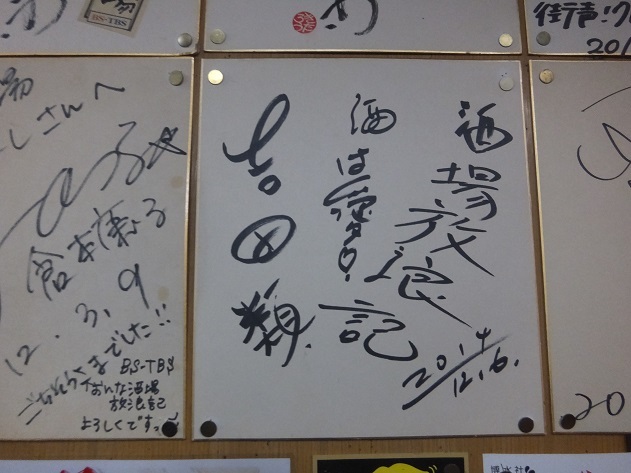 BS-TBS
201
場
しさんへ
倉本康子
12.3.9
ごちそうさまでした!!
BS-TBS
おんな酒場
放浪記
よろしくですっ
酒場放浪記
2014.12.6.
酒は
吉田類
20